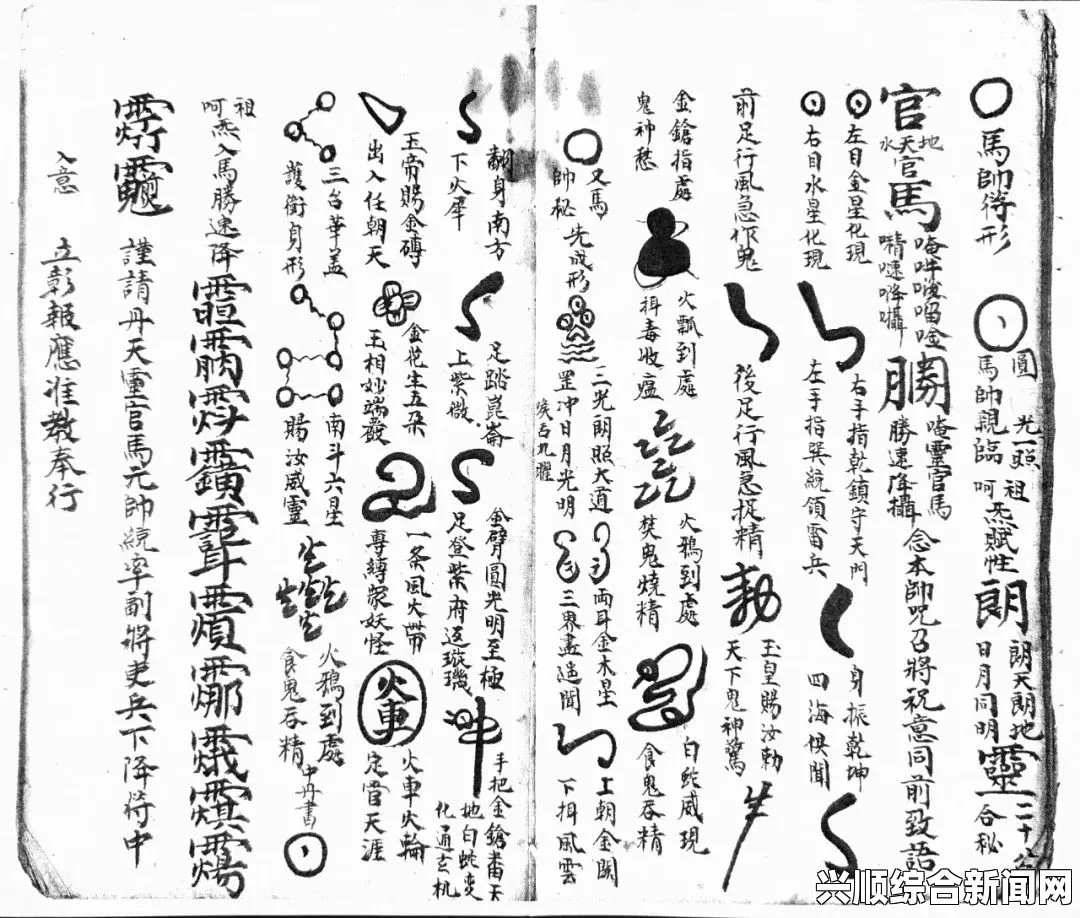 馬帥符形
圓光一照
馬帥親臨
呵
祖炁賦性
朗
朗天朗地
日月同明
靈
合秘
官
地天水官
馬
勝
唵靈官馬
勝速降攝
念本帥咒召將祝意同前致語
左目金星化現
右目水星化現
右手指乾鎮守天門
左手指巽統領雷兵
身振乾坤
四海俱聞
前足行風急作鬼
後足行風急捉精
勅
玉皇賜汝勅
天下鬼神驚
金鎗指處
鬼神愁
火瓢到處
揖毒收瘟
火鴉到處
焚鬼燒精
白蛇威現
食鬼吞精
又馬帥秘
先成形
三光朗照大道
罡冲日月光明
两耳金木星
三界盡遥聞
上朝金闕
下揖風雲
翻身南方
下火犀
足踏崑崙
上紫微
金臂圓光明至極
足登紫府逐璇璣
手把金鎗畨天
地白蛇变
化通玄机
玉帝賜金磚
出入任朝天
金花生五朵
玉相妙端嚴
一条風火帶
專縛衆妖怪
火車
火車火輪
定霄天涯
三台華盖
護衛身形
南斗六星
賜汝威靈
火鴉到處
食鬼吞精
中丹書
祖
呵炁入馬勝速降
謹請丹天靈官馬元帥統率副將吏兵下降符中
入意 立彰報應准教奉行
兴顺综合新闻网